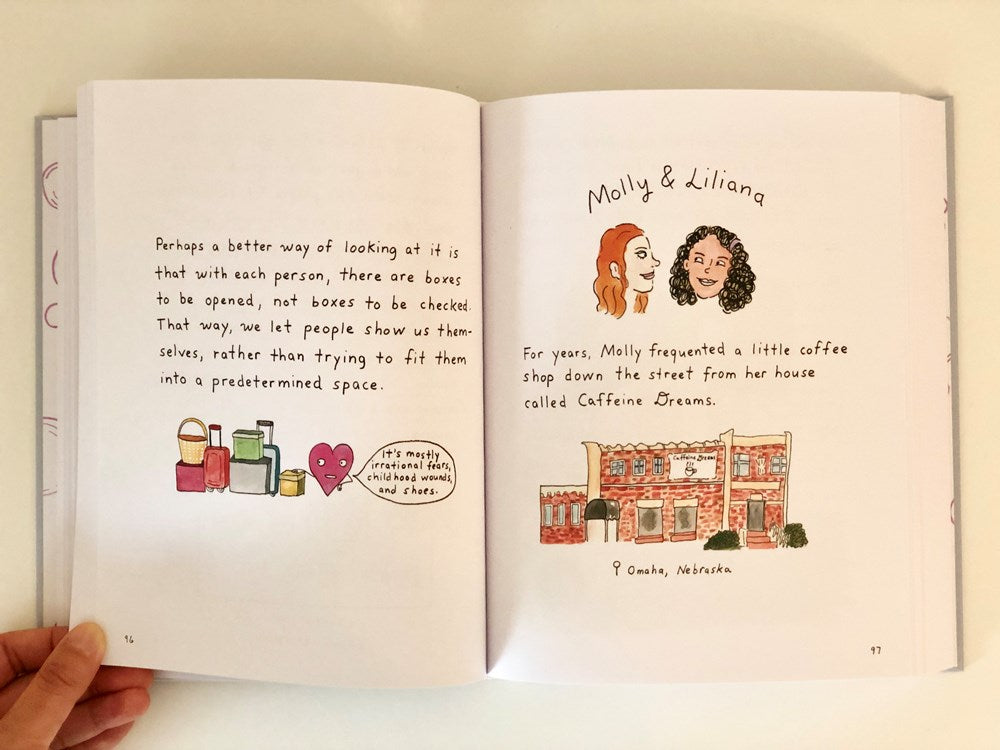 Perhaps a better way of looking at it is
that with each person, there are boxes
to be opened, not boxes to be checked.
That way, we let people show us them-
selves, rather than trying to fit them
into a predetermined space.
It's mostly
irrational fears,
childhood wounds,
and shoes.
96
Molly & Liliana
For years, Molly frequented a little coffee
shop down the street from her house
called Caffeine Dreams.
Caffeine Dreams
Omaha, Nebraska
97